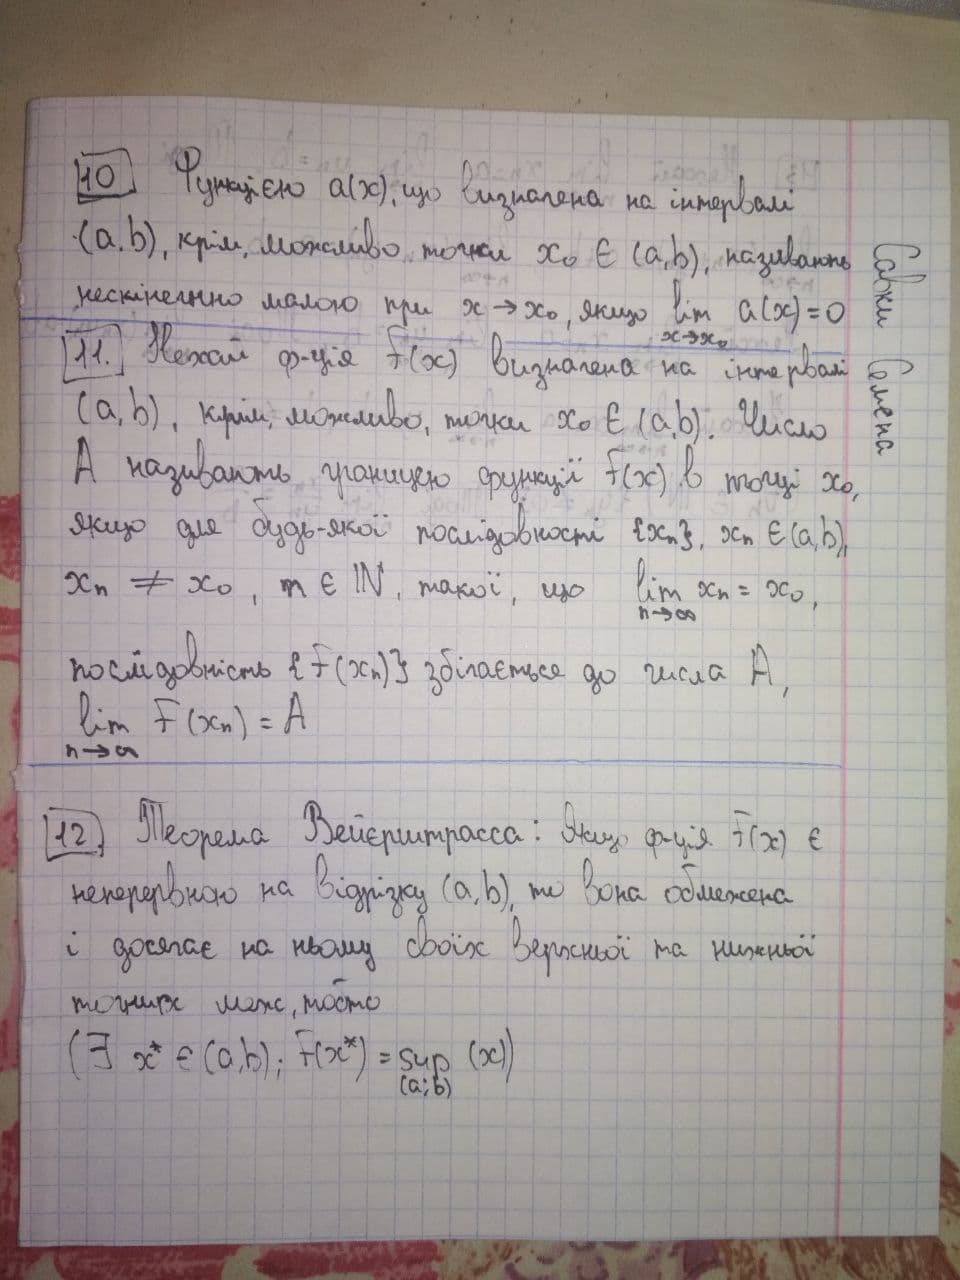 10. Функцією a(x), що визначена на інтервалі
(a,b), крім, можливо точки x₀ ∈ (a,b), називають
нескінченно малою при x→x₀, якщо lim a(x)=0
x→x₀
11. Нехай ф-ція F(x) визначена на інтервалі
(a,b), крім, можливо, точки x₀ ∈ (a,b). Число
A називають границею функції F(x) в точці x₀,
якщо для будь-якої послідовності {xₙ}, xₙ ∈ (a,b),
xₙ ≠ x₀, n ∈ ℕ, такої, що lim xₙ = x₀,
n→∞
послідовність {F(xₙ)} збігається до числа A,
lim F(xₙ) = A
n→∞
12. Теорема Вейєрштрасса: Якщо ф-ція F(x) є
неперервною на відрізку (a,b), то вона обмежена
і досягає на ньому своїх верхньої та нижньої
точних меж, тобто
(∃ x* ∈ (a,b); F(x*) = sup (x))
(a;b)
Савки Семена